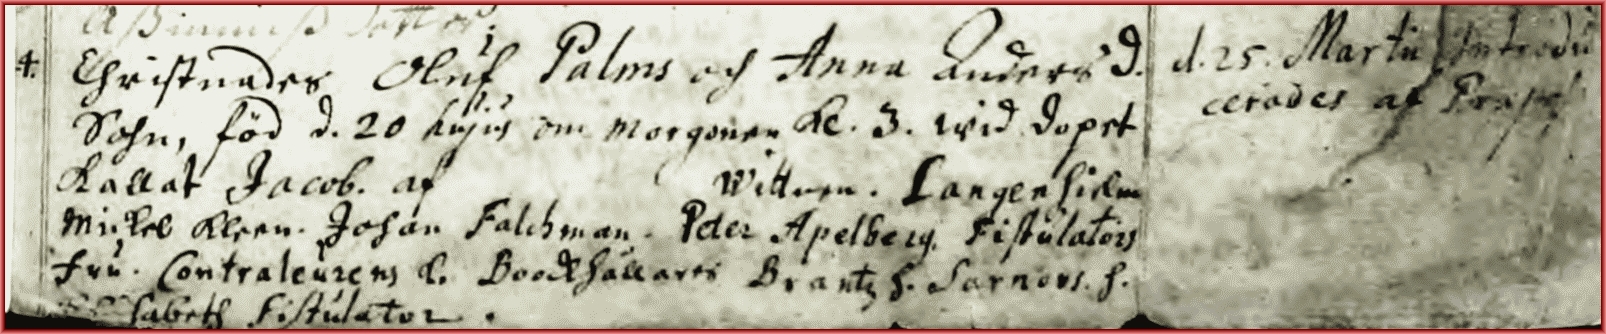 4. Christnades Oluf Palms och Anna Anders d.
Sohn, föd d. 20 hujus om morgonen kl. 3. wid dopet
kallat Jacob. af Wittnen. Langenhielm
Mickel Kleen. Johan Falchman. Peter Apelberg. Fistulators
fru. Contraleurens h. Boockhållares Brantz h. Sarnovs. h.
Fistulator.
d. 25. Martii Introdu
cerades af